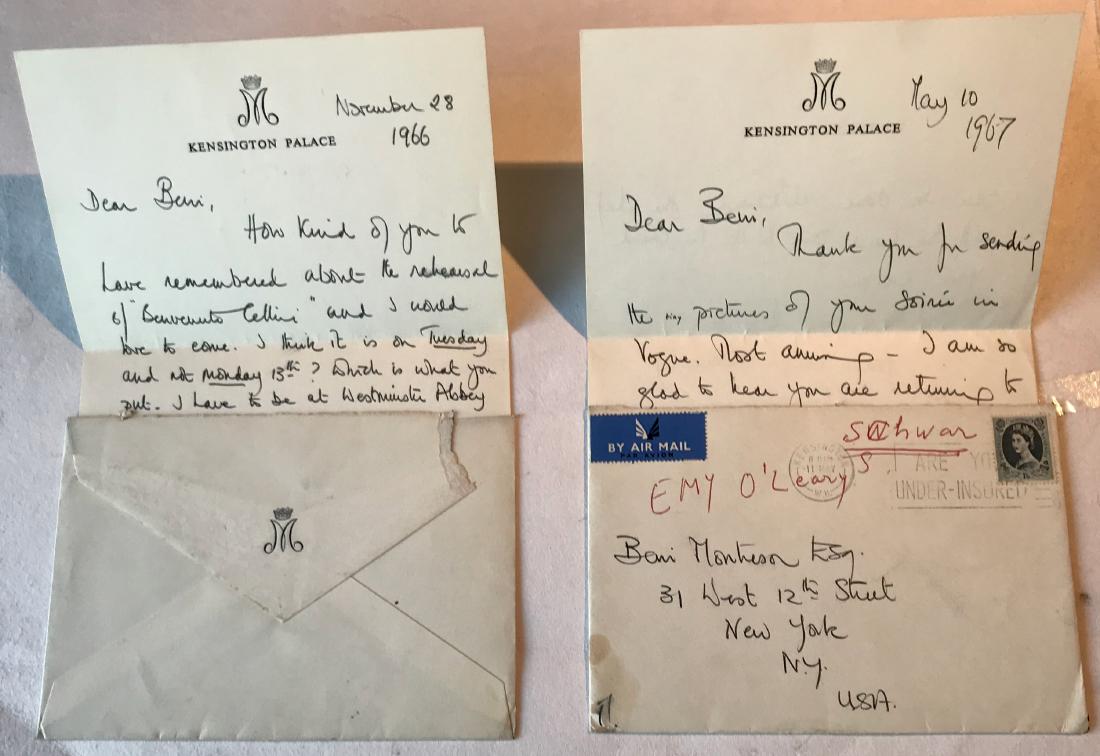 M
KENSINGTON PALACE
November 28
1966
Dear Beni,
How kind of you to
have remembered about the rehearsal
of "Benvenuto Cellini" and I would
love to come. I think it is on Tuesday
and not Monday 13th? Which is what you
put. I have to be at Westminster Abbey
M
M
KENSINGTON PALACE
May 10
1967
Dear Beni,
Thank you for sending
the pictures of your Soirée in
Vogue. Most amusing – I am so
glad to hear you are returning to
BY AIR MAIL
PAR AVION
Schwar
S.
EMY O'Leary
KENSINGTON
11 MAY
W.8
ARE YOU
UNDER-INSURED
Beni Montresor Esq.
31 West 12th Street
New York
N.Y.
USA.